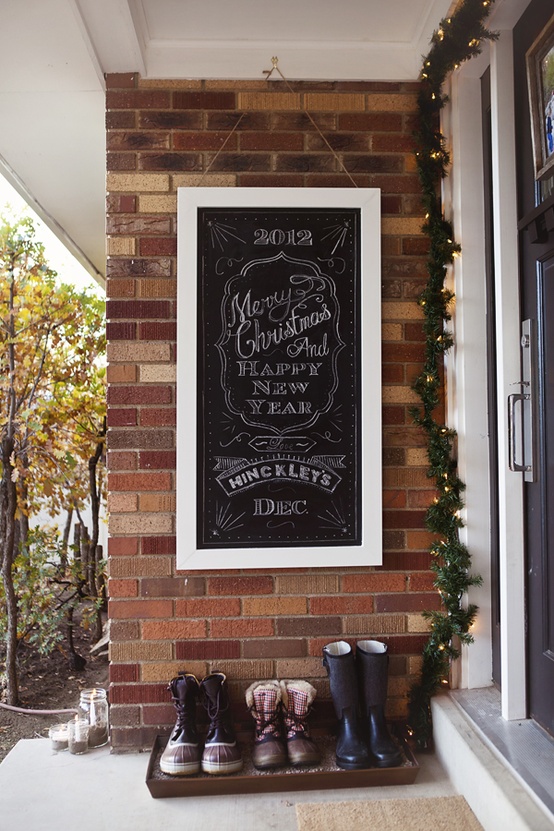 2012
Merry
Christmas
And
HAPPY
NEW
YEAR
Love
HINCKLEY'S
DEC.